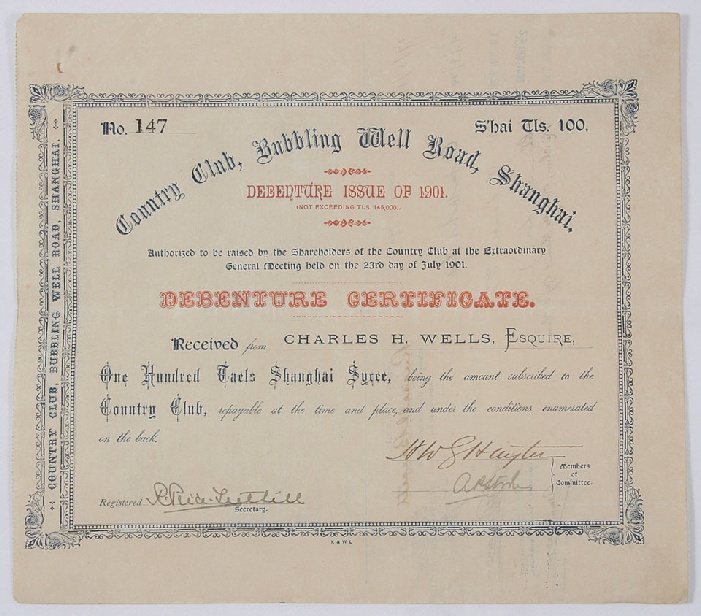 No. 147
S'hai Tls. 100.
Country Club, Bubbling Well Road, Shanghai.
DEBENTURE ISSUE OF 1901.
(NOT EXCEEDING TLS.
Authorized to be raised by the Shareholders of the Country Club at the Extraordinary
General Meeting held on the 23rd day of July 1901.
DEBENTURE CERTIFICATE.
Received from CHARLES H. WELLS, ESQUIRE,
One Hundred Taels Shanghai Sycee, being the amount subscribed to the
Country Club, repayable at the time and place, and under the conditions enumerated
on the back.
Members
of
Committee.
Registered
Secretary.
K & W L
COUNTRY CLUB, BUBBLING WELL ROAD, SHANGHAI.